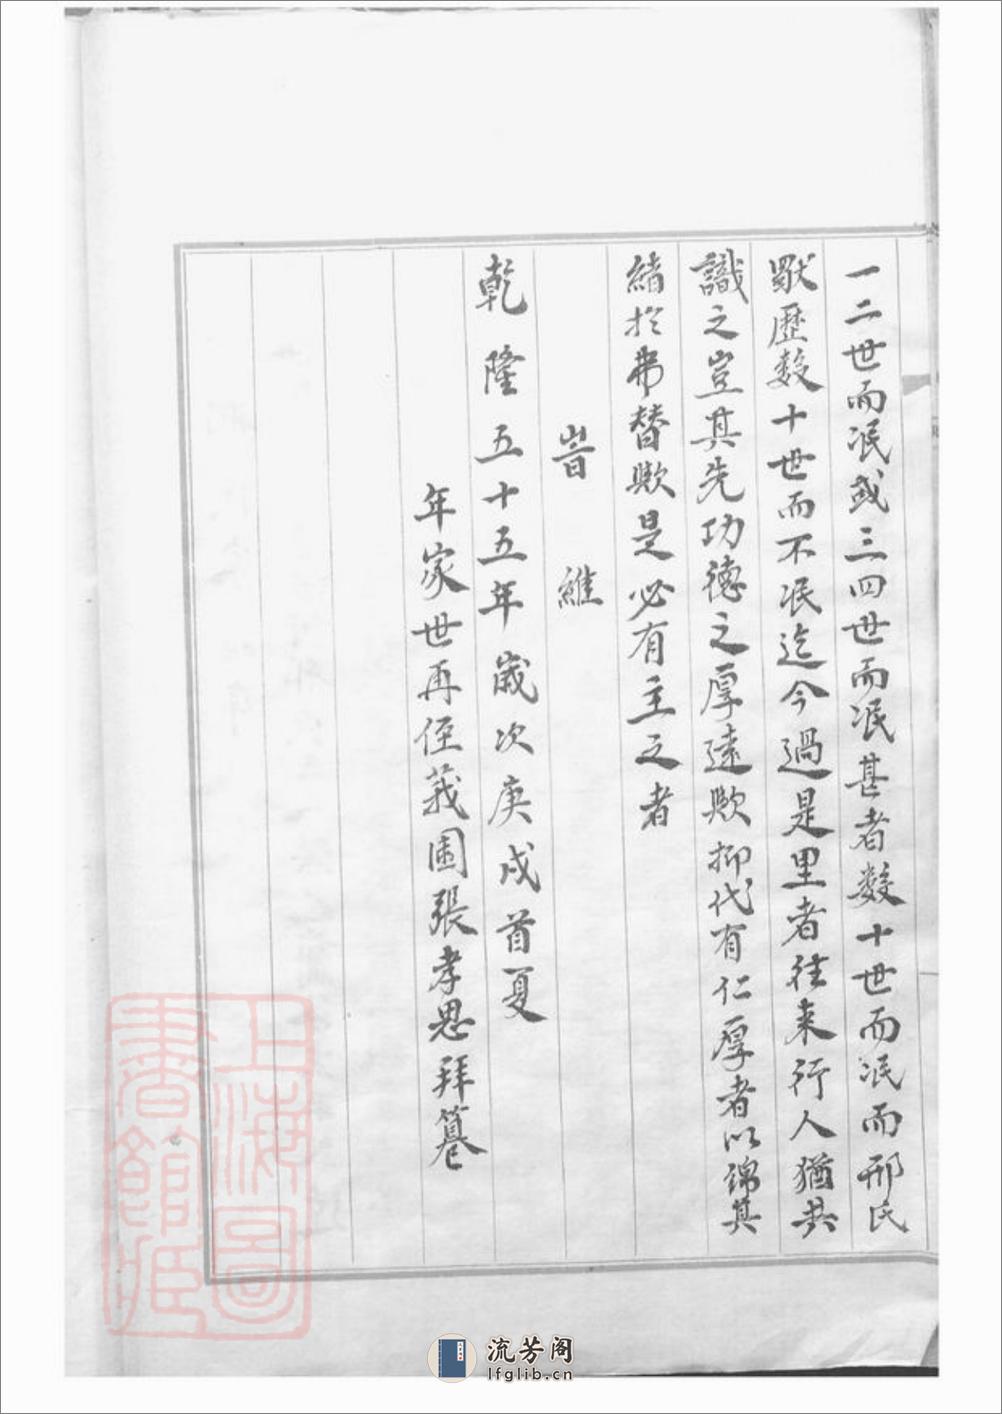 一二世而冺或三四世而冺甚者数十世而冺而邢氏
獸歷数十世而不冺迄今過是里者往来行人猶共
識之豈其先功德之厚遠歟抑代有仁厚者以綿其
緒扵弗替歟是必有主之者
旹維
乾隆五十五年歲次庚戌首夏
年家世再侄莪圃張孝思拜篡
上海圖書館藏
流芳阁
lfglib.cn